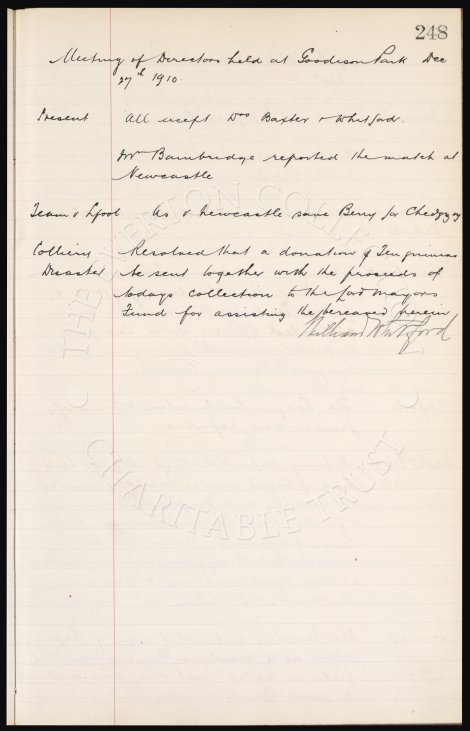 248
Meeting of Directors held at Goodison Park Dec
27th 1910.
Present All except Drs Baxter & Whitford.
Mr Bainbridge reported the match at
Newcastle
Team v L'pool As v Newcastle save Berry for Chedgzoy
Colliery Resolved that a donation of Ten guineas
Disaster be sent together with the proceeds of
todays collection to the Lord Mayors
Fund for assisting the bereaved therein
William Whitford
THE EVERTON COLLECTION
CHARITABLE TRUST